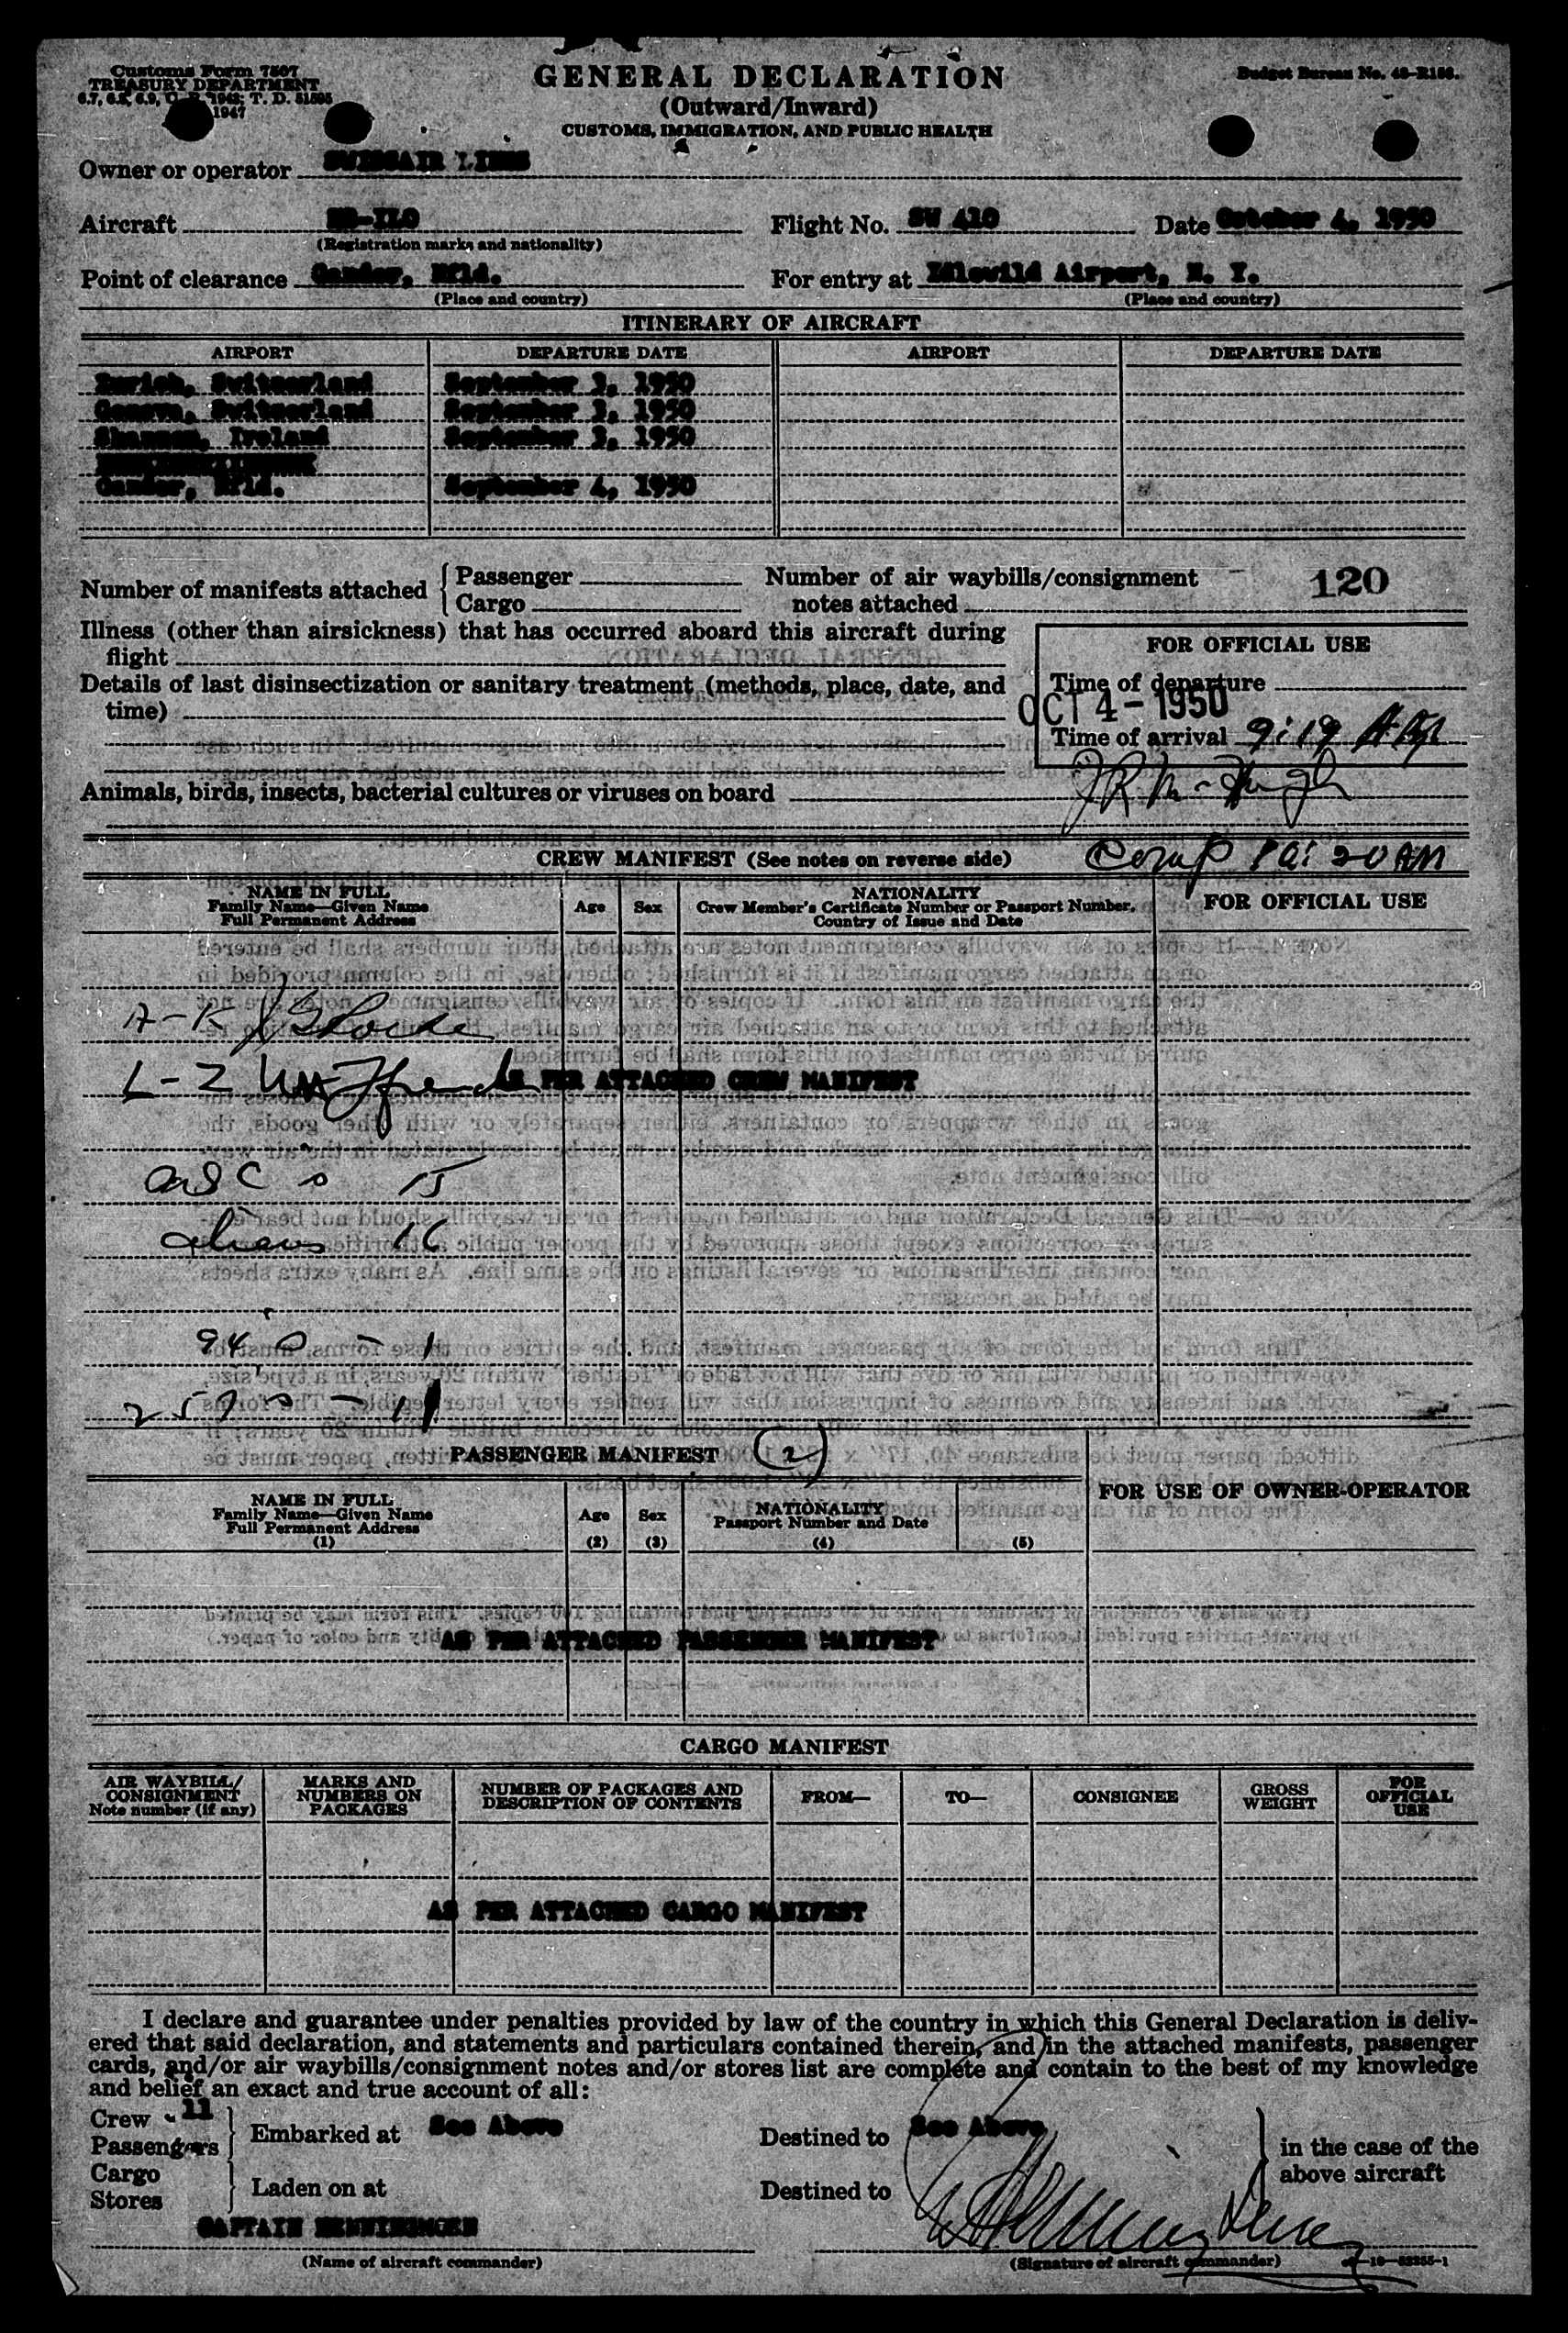 Customs Form 7507
TREASURY DEPARTMENT
1947
GENERAL DECLARATION
(Outward/Inward)
CUSTOMS, IMMIGRATION, AND PUBLIC HEALTH
Budget Bureau No.
Owner or operator SWISSAIR LINES
Aircraft HB-ILO Flight No. SW 410 Date October 4, 1950
(Registration marks and nationality)
Point of clearance Gander, Nfld. For entry at Idlewild Airport, N. Y.
(Place and country) (Place and country)
ITINERARY OF AIRCRAFT
AIRPORT DEPARTURE DATE AIRPORT DEPARTURE DATE
Zurich, Switzerland September 3, 1950
Geneva, Switzerland September 3, 1950
Shannon, Ireland September 3, 1950
Gander, Nfld. September 4, 1950
Number of manifests attached { Passenger Number of air waybills/consignment 120
Cargo notes attached
Illness (other than airsickness) that has occurred aboard this aircraft during
flight
FOR OFFICIAL USE
Details of last disinsectization or sanitary treatment (methods, place, date, and
time)
Time of departure
OCT 4 - 1950
Time of arrival 9:19 AM
Animals, birds, insects, bacterial cultures or viruses on board
CREW MANIFEST (See notes on reverse side) Comp 10:20 AM
NAME IN FULL
Family Name—Given Name
Full Permanent Address
Age Sex
NATIONALITY
Crew Member's Certificate Number or Passport Number,
Country of Issue and Date
FOR OFFICIAL USE
A-K
L-Z
AS PER ATTACHED CREW MANIFEST
15
aliens 16
94 1
257
PASSENGER MANIFEST (2)
NAME IN FULL
Family Name—Given Name
Full Permanent Address
(1)
Age
(2)
Sex
(3)
NATIONALITY
Passport Number and Date
(4) (5)
FOR USE OF OWNER-OPERATOR
AS PER ATTACHED PASSENGER MANIFEST
CARGO MANIFEST
AIR WAYBILL/
CONSIGNMENT
Note number (if any)
MARKS AND
NUMBERS ON
PACKAGES
NUMBER OF PACKAGES AND
DESCRIPTION OF CONTENTS
FROM—
TO—
CONSIGNEE
GROSS
WEIGHT
FOR
OFFICIAL
USE
AS PER ATTACHED CARGO MANIFEST
I declare and guarantee under penalties provided by law of the country in which this General Declaration is deliv-
ered that said declaration, and statements and particulars contained therein, and in the attached manifests, passenger
cards, and/or air waybills/consignment notes and/or stores list are complete and contain to the best of my knowledge
and belief an exact and true account of all:
Crew - 11
Passengers
Embarked at See Above Destined to See Above
in the case of the
above aircraft
Cargo
Stores
Laden on at Destined to
CAPTAIN
(Name of aircraft commander) (Signature of aircraft commander)